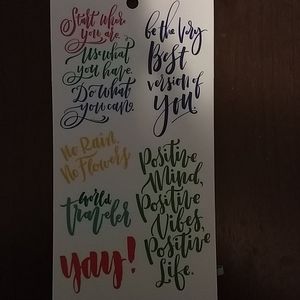 Start where
you are.
Use what
you have.
Do what
you can.
be the very
Best
version of
you
No Rain,
No Flowers
world
traveler
yay!
Positive
Mind,
Positive
Vibes,
Positive
Life.